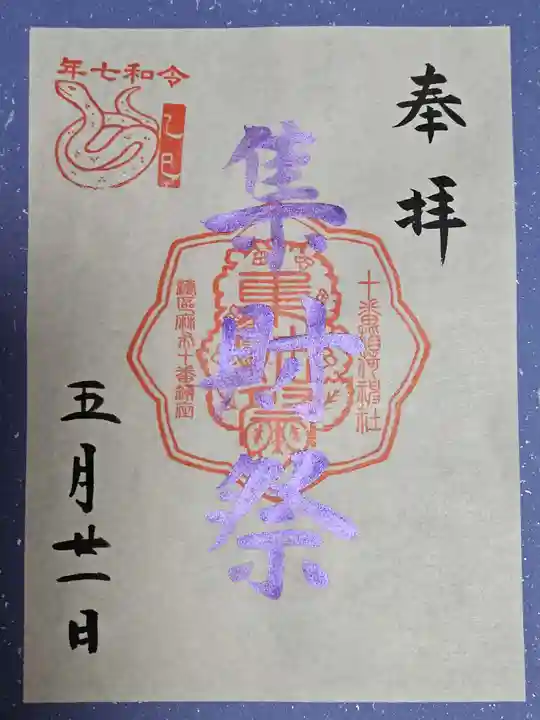 奉拝
令和七年
乙巳
集財祭
十番稲荷神社
港区麻布十番鎮座
五月廿一日